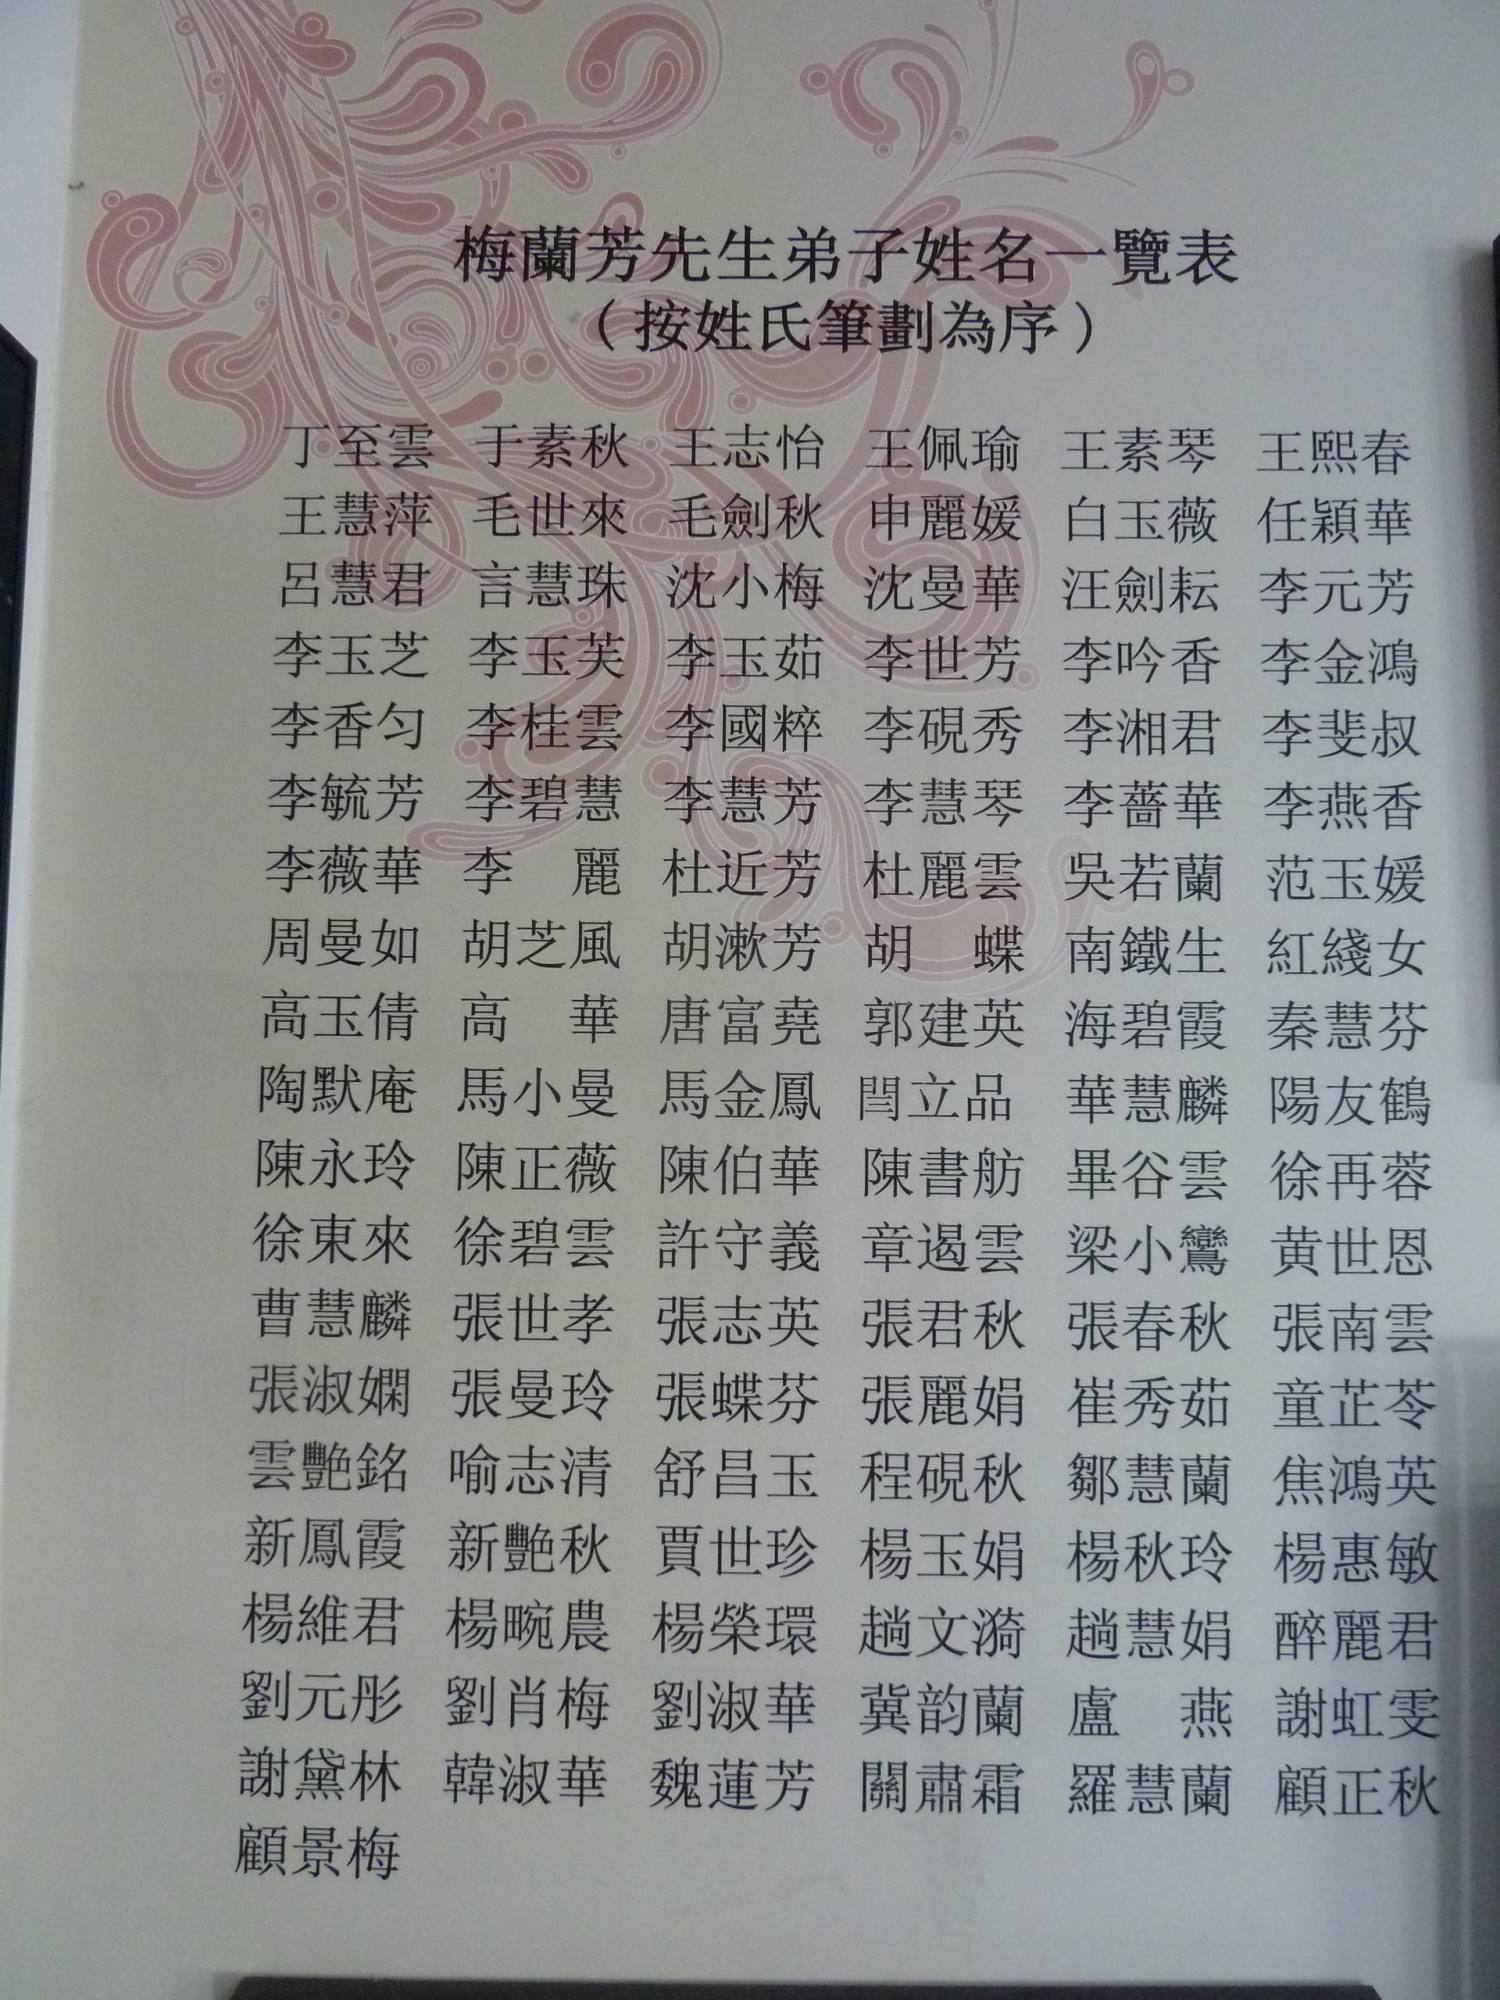 梅蘭芳先生弟子姓名一覽表
（按姓氏筆劃為序）
丁至雲 于素秋 王志怡 王佩瑜 王素琴 王熙春
王慧萍 毛世來 毛劍秋 申麗媛 白玉薇 任穎華
呂慧君 言慧珠 沈小梅 沈曼華 汪劍耘 李元芳
李玉芝 李玉芙 李玉茹 李世芳 李吟香 李金鴻
李香匀 李桂雲 李國粹 李硯秀 李湘君 李斐叔
李毓芳 李碧慧 李慧芳 李慧琴 李薔華 李燕香
李薇華 李　麗 杜近芳 杜麗雲 吳若蘭 范玉媛
周曼如 胡芝風 胡漱芳 胡　蝶 南鐵生 紅綫女
高玉倩 高　華 唐富堯 郭建英 海碧霞 秦慧芬
陶默庵 馬小曼 馬金鳳 閆立品 華慧麟 陽友鶴
陳永玲 陳正薇 陳伯華 陳書舫 畢谷雲 徐再蓉
徐東來 徐碧雲 許守義 章遏雲 梁小鸞 黄世恩
曹慧麟 張世孝 張志英 張君秋 張春秋 張南雲
張淑嫻 張曼玲 張蝶芬 張麗娟 崔秀茹 童芷苓
雲艷銘 喻志清 舒昌玉 程硯秋 鄒慧蘭 焦鴻英
新鳳霞 新艷秋 賈世珍 楊玉娟 楊秋玲 楊惠敏
楊維君 楊畹農 楊榮環 趙文漪 趙慧娟 醉麗君
劉元彤 劉肖梅 劉淑華 冀韵蘭 盧　燕 謝虹雯
謝黛林 韓淑華 魏蓮芳 關肅霜 羅慧蘭 顧正秋
顧景梅